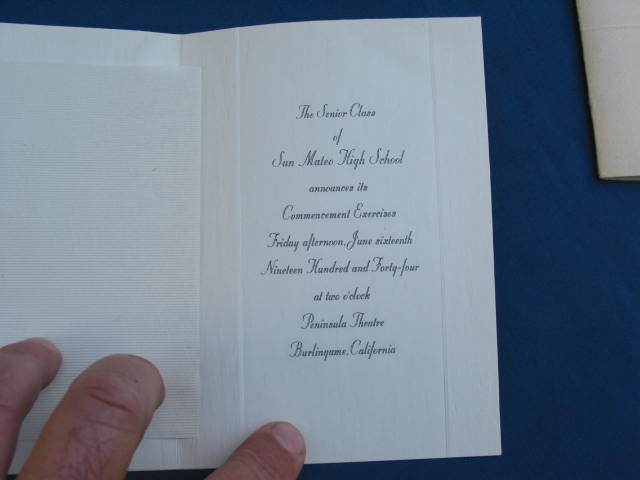 The Senior Class
of
San Mateo High School
announces its
Commencement Exercises
Friday afternoon, June sixteenth
Nineteen Hundred and Forty-four
at two o'clock
Peninsula Theatre
Burlingame, California